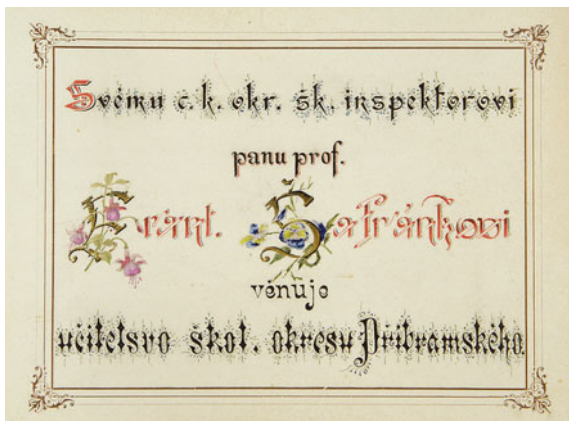 Svému c. k. okr. šk. inspektorovi
panu prof.
Frant. Šafránkovi
věnuje
učitelsvo škol. okresu Příbramského.